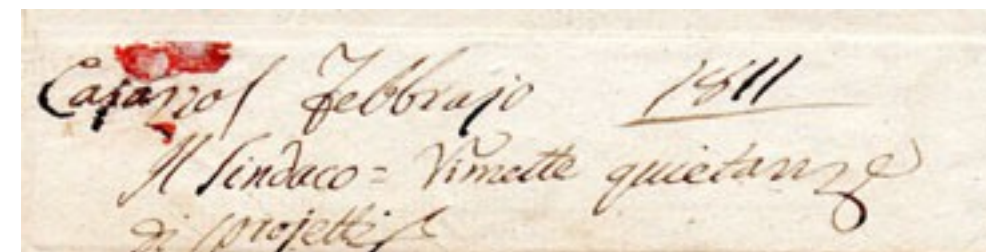 Cajazzo Febbrajo 1811
Il Sindaco = Rimette quietanze
di projetti